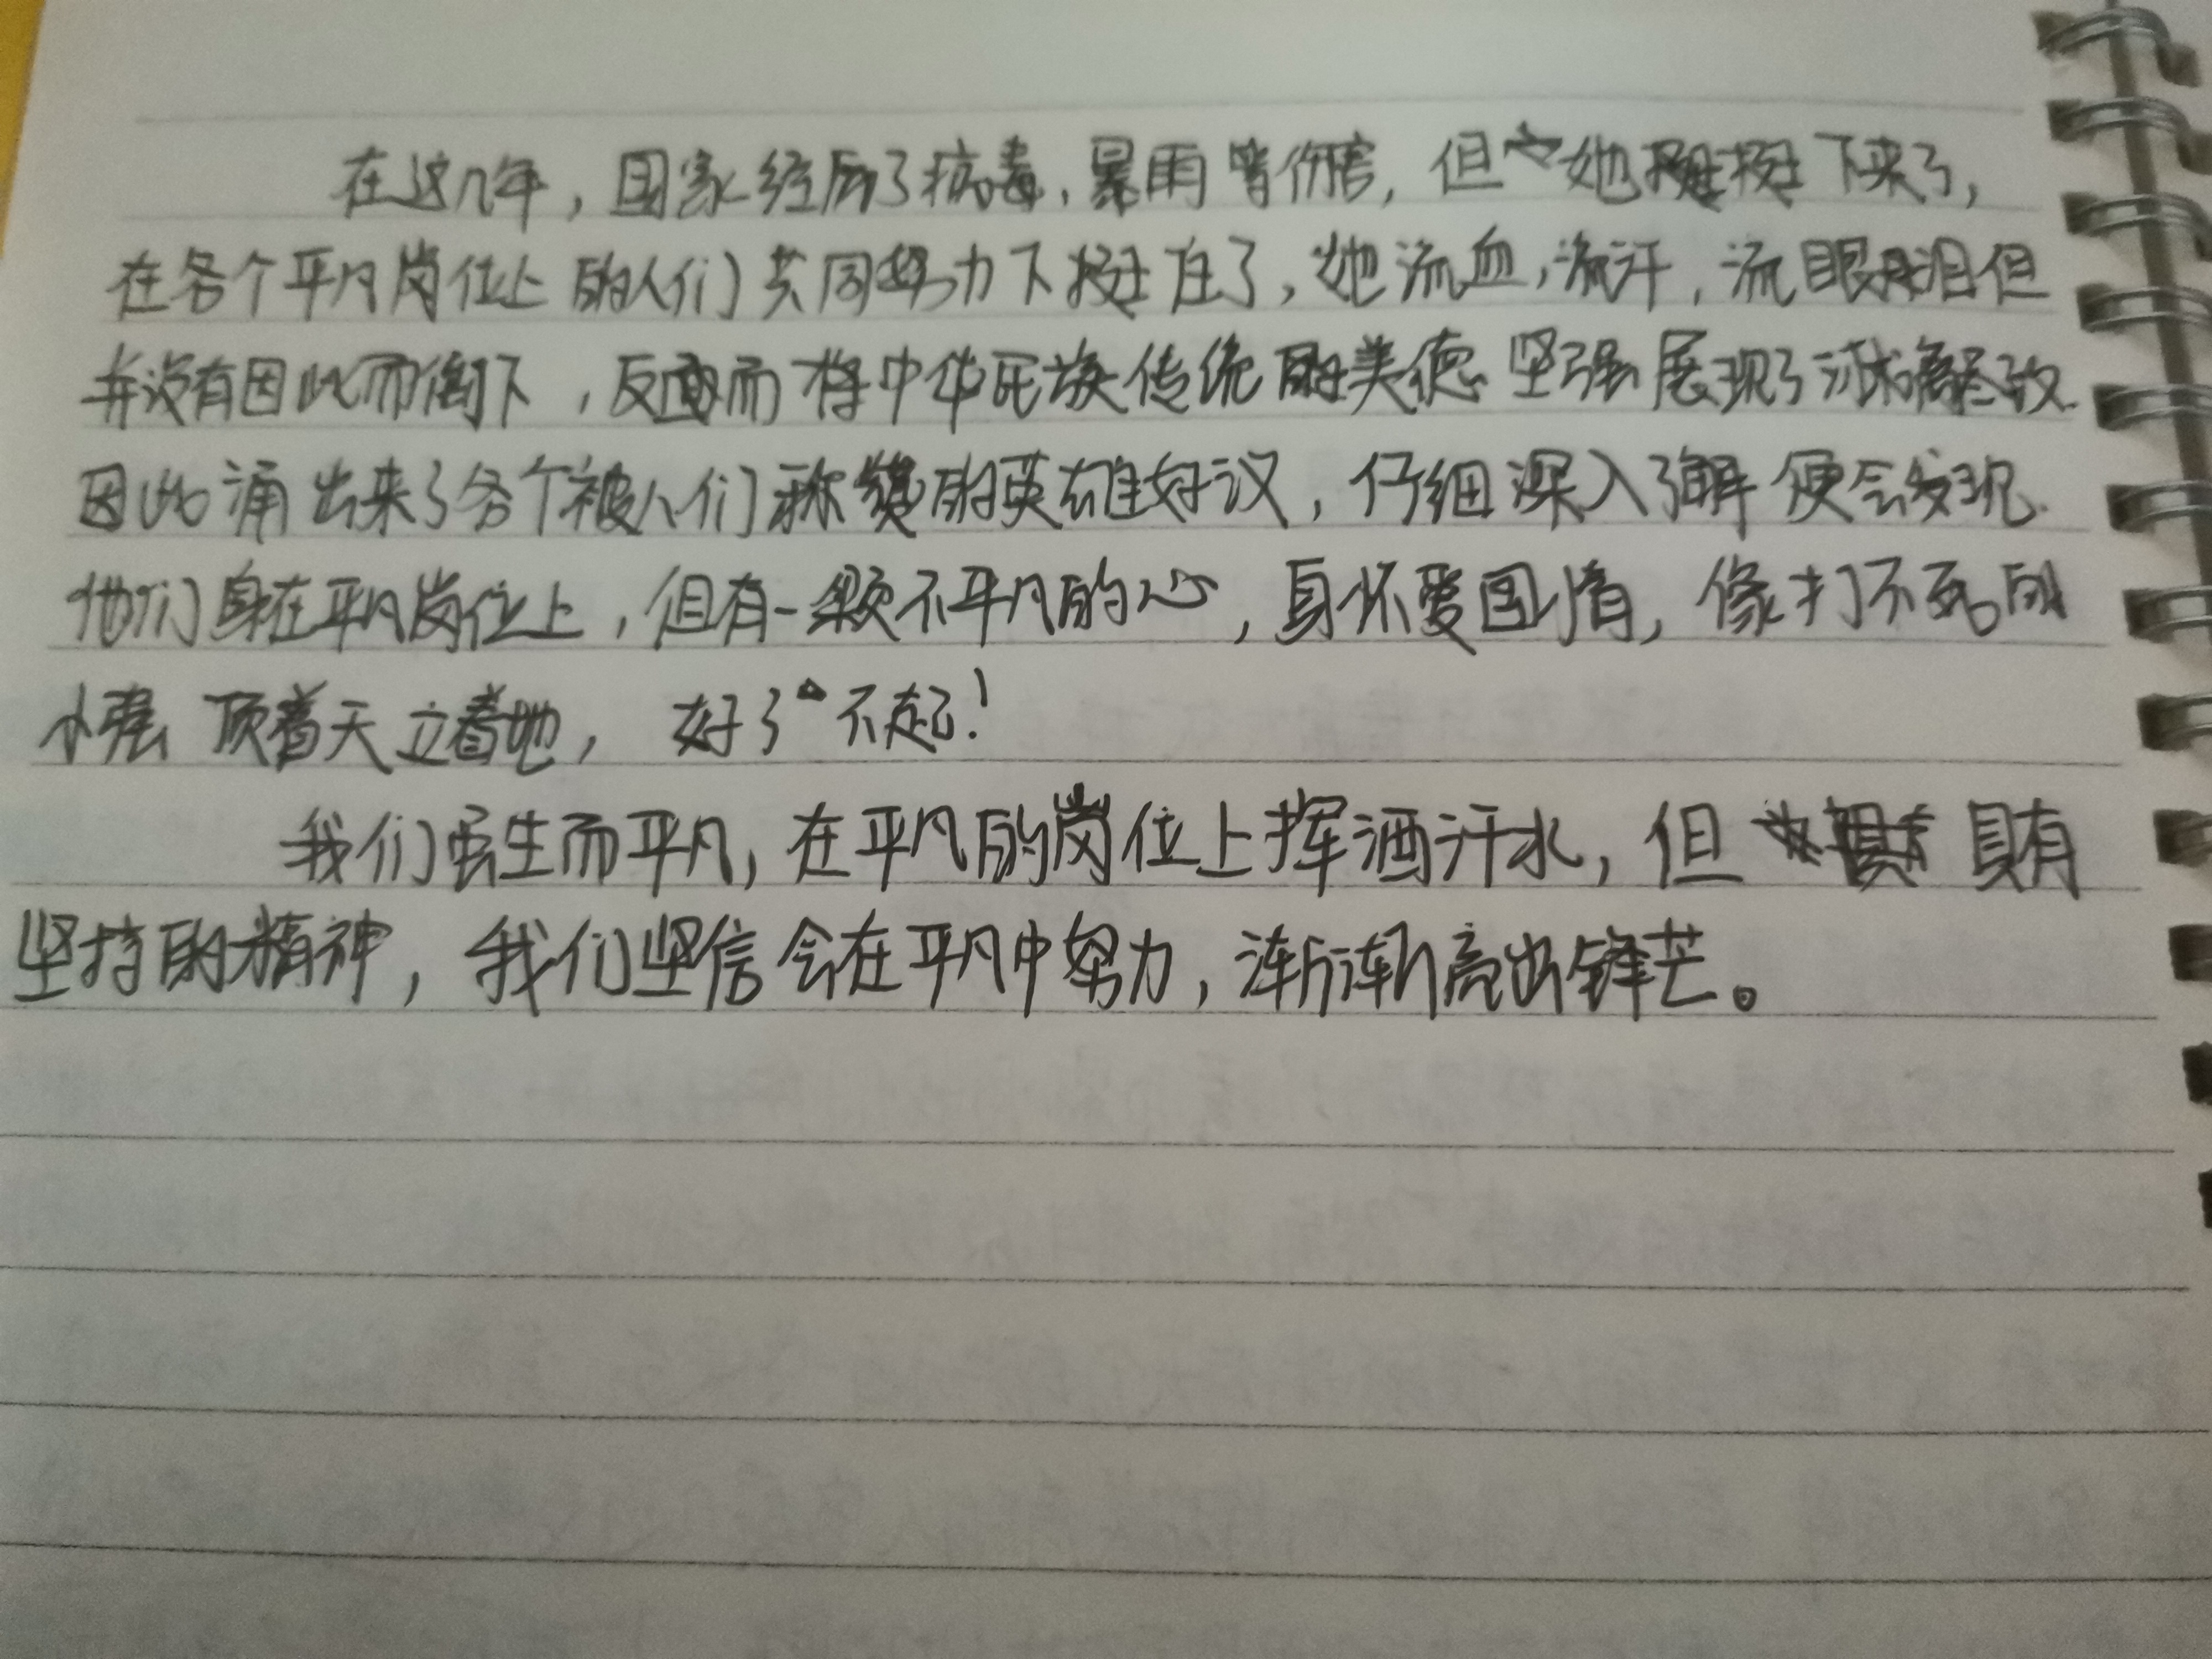 在这几年，国家经历了病毒，暴雨等伤害，但她挺下来了，
在各个平凡岗位上的人们共同努力下挺住了，她流血，流汗，流眼泪但
并没有因此而倒下，反而将中华民族传统的美德坚强展现了淋漓尽致.
因此涌出来了各个被人们称赞的英雄好汉，仔细深入了解便会发现.
他们身在平凡岗位上，但有一颗不平凡的心，身怀爱国情，像打不死的
小强顶着天立着地，好了不起！
我们虽生而平凡，在平凡的岗位上挥洒汗水，但具有
坚持的精神，我们坚信会在平凡中努力，渐渐高出锋芒。